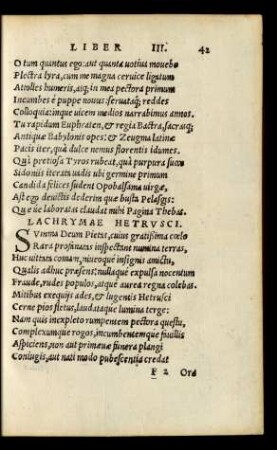 LIBER III. 42
O tum quantus ego: aut quanta uotiua mouebo
Plectra lyra, cum me magna ceruice ligatum
Attolles humeris, atq; in mea pectora primum
Incumbes è puppe nouus: seruataq; reddes
Colloquia: inque uicem medios narrabimus annos.
Tu rapidum Euphraten, & regia Bactra, sacrasq;
Antiquæ Babylonis opes: & Zeugma latinæ
Pacis iter, quà dulce nemus florentis idumes.
Quà pretiosa Tyros rubeat, quà purpura suco
Sidoniis iterata uadis ubi germine primum
Candida felices sudent Opobalsama uirgæ,
Ast ego deuictis dederim quæ busta Pelasgis:
Quæ ue laboratas claudat mihi Pagina Thebas.
LACHRYMAE HETRVSCI.
SVmma Deum Pietas, cuius gratissima cœlo
Rara prophanatas inspectant numina terras,
Huc uittata comam, niueoque insignis amictu,
Qualis adhuc præsens; nullaque expulsa nocentum
Fraude, rudes populos, atque aurea regna colebas.
Mitibus exequijs ades, & lugentis Hetrusci
Cerne pios fletus, laudataque lumina terge:
Nam quis inexpleto rumpentem pectora questu,
Complexumque rogos, incumbentemque fauillis
Aspiciens, non aut primæuæ funera plangi
Coniugis, aut nati modo pubescentia credat
F 2 Ora